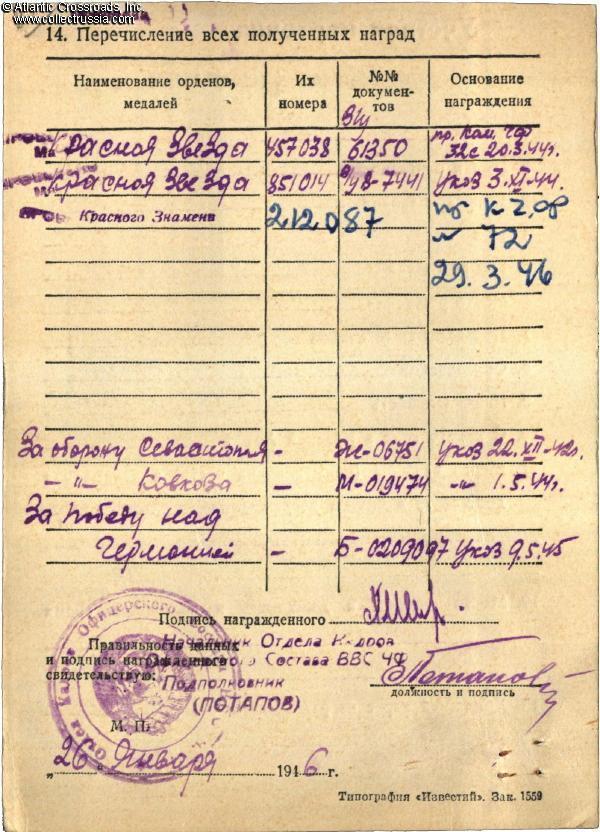 © Atlantic Crossroads, Inc.
www.collectrussia.com
14. Перечисление всех полученных наград
Наименование орденов, медалей
Их номера
№№ докумен-тов
Основание награждения
Красная Звезда 457038 61350 пр. Ком. ЧФ 32с 20.3.44г.
Красная Звезда 851014 148-7441 Указ 3.XI-44.
Красного Знамени 212087 пр К ЧФ
№ 72
29.3.46
За оборону Севастополя - Ж-06751 Указ 22.XII-42г.
-"- Кавказа - М-019474 -"- 1.5.44г.
За победу над
Германией - Б-0209097 Указ 9.5.45
Подпись награжденного
Правильность данных
и подпись награжденного
свидетельствую:
Начальник Отдела Кадров
Состава ВВС ЧФ
Подполковник
(ПОТАПОВ)
Потапов
должность и подпись
М. П.
Отдел Кадров Офицерского
„26" Января 1946 г.
Типография «Известий». Зак. 1559